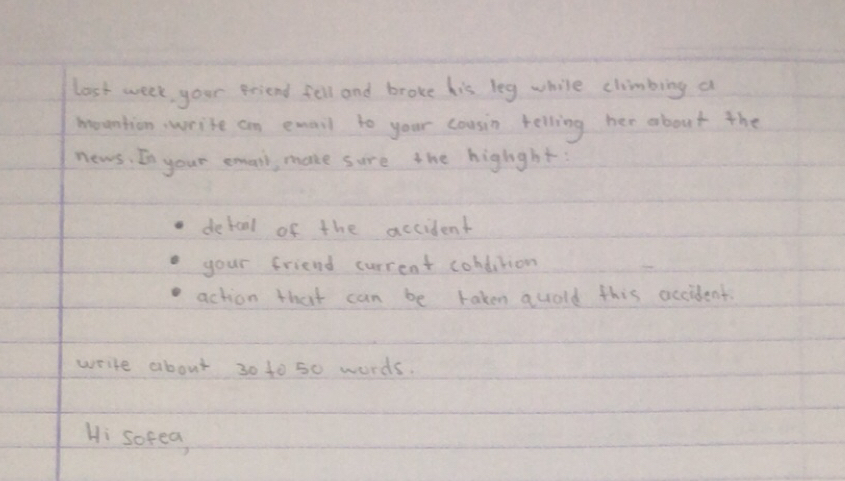 Last week, your friend fell and broke his leg while climbing a
mountion. write an email to your cousin telling her about the
news. In your email, make sure the highght:
• detail of the accident
• your friend current condition
• action that can be taken quold this accident.
write about 30 to 50 words.
Hi Sofea,